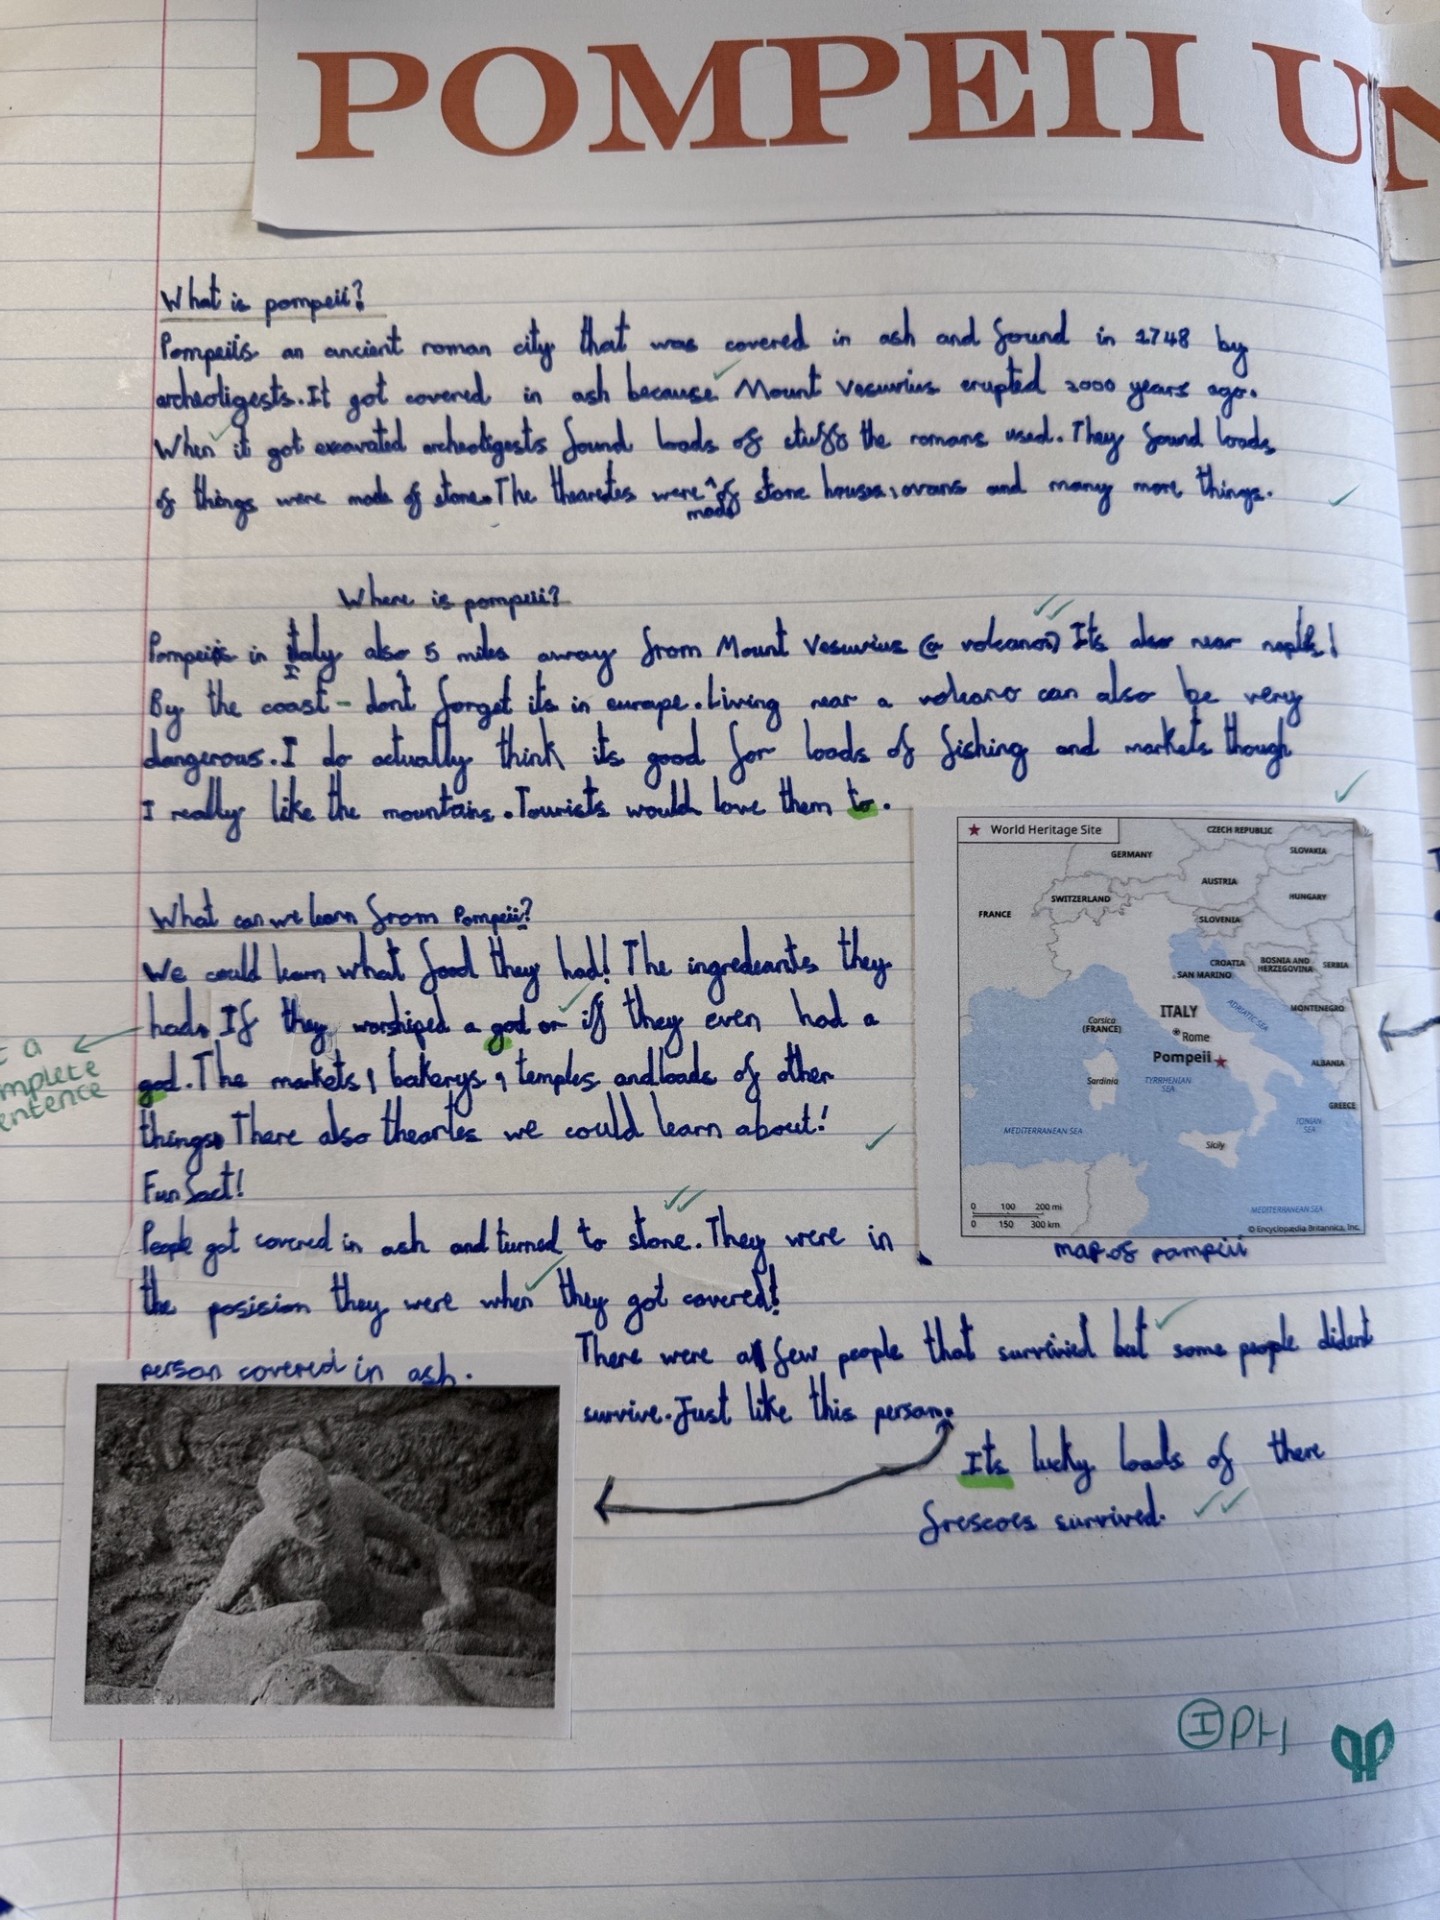 POMPEII UN
What is pompeii?
Pompeiis an ancient roman city that was covered in ash and found in 1748 by
archeoligests. It got covered in ash because Mount Vesuvius erupted 2000 years ago.
When it got excavated archeoligests found loads of stuff the romans used. They found loads
of things were made of stone. The thearetes were ^ of stone houses, ovans and many more things.
made
Where is pompeii?
Pompeiis in Italy also 5 miles away from Mount Vesuvius (a volcano) Its also near naples!
By the coast - dont forget its in europe. Living near a volcano can also be very
dangerous. I do actually think its good for loads of fishing and markets though
I really like the mountains. Tourists would love them to.
What can we learn from Pompeii?
We could learn what food they had! The ingredeants they
had. If they worshiped a god or if they even had a
god. The markets, bakerys, temples and loads of other
things. There also theartes we could learn about!
a
mplete
entence
Fun fact!
People got covered in ash and turned to stone. They were in
the posision they were when they got covered!
There were a few people that survived but some people dident
survive. Just like this person.
Its lucky loads of there
frescoes survived.
person covered in ash.
World Heritage Site
CZECH REPUBLIC
GERMANY
SLOVAKIA
AUSTRIA
SWITZERLAND
HUNGARY
FRANCE
SLOVENIA
CROATIA
BOSNIA AND
HERZEGOVINA
SERBIA
SAN MARINO
ITALY
ADRIATIC SEA
MONTENEGRO
Corsica
(FRANCE)
Rome
Pompeii
ALBANIA
Sardinia
TYRRHENIAN
SEA
GREECE
MEDITERRANEAN SEA
IONIAN
SEA
Sicily
0 100 200 mi
0 150 300 km
MEDITERRANEAN SEA
© Encyclopædia Britannica, Inc.
map of pompeii
I PH